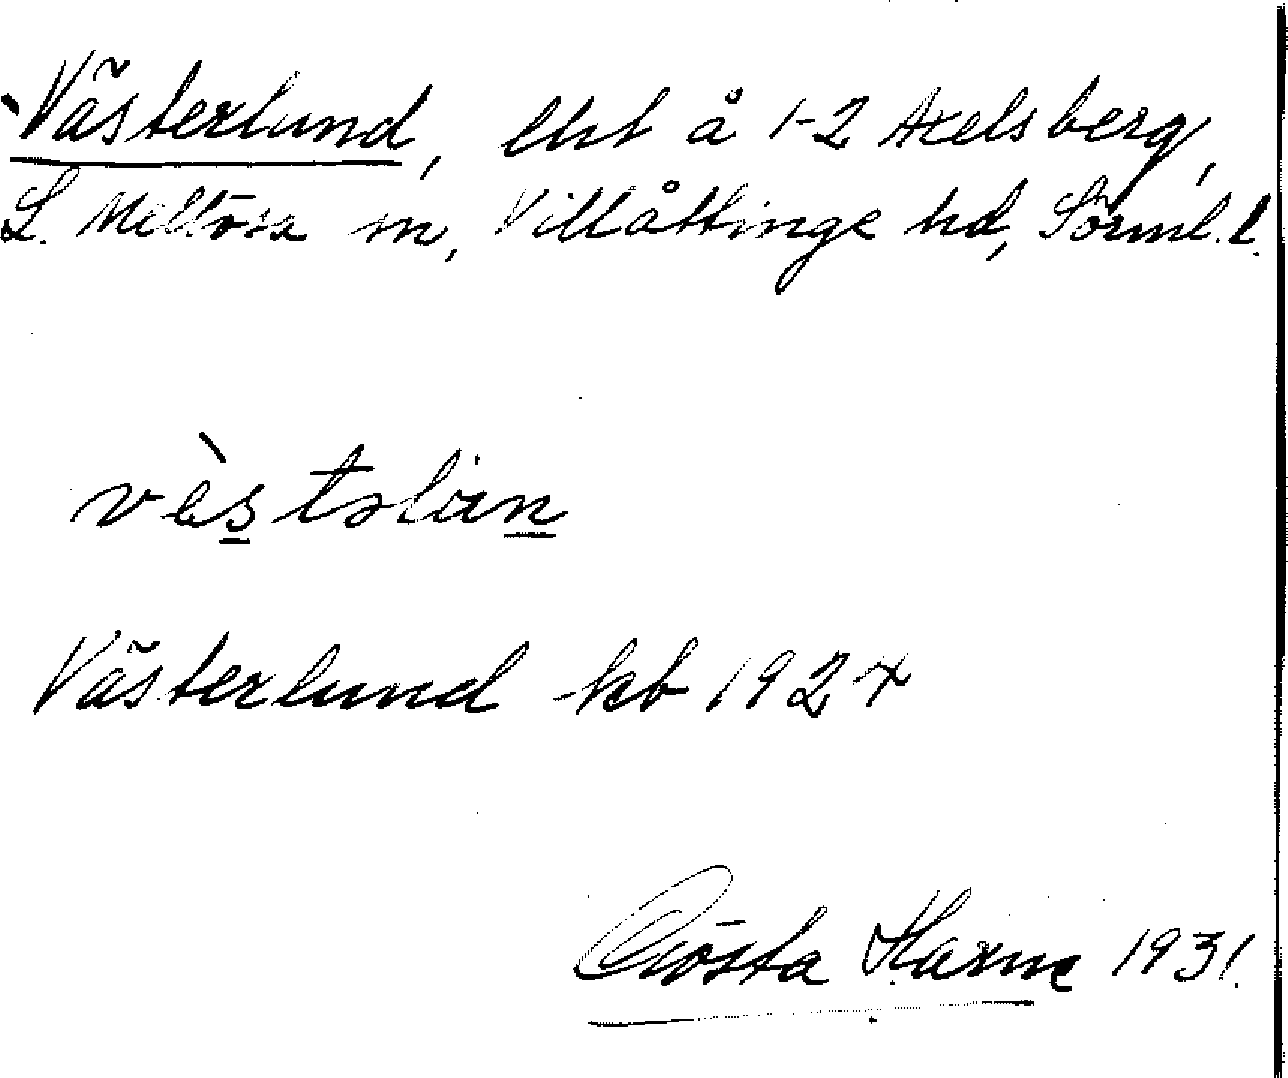 Västerlund, lht å 1-2 Axelsberg,
L. Mellösa sn, Villåttinge hd, Sörml. l.
vèstəlɯn
Västerlund kb 1924
Gösta Harne 1931.